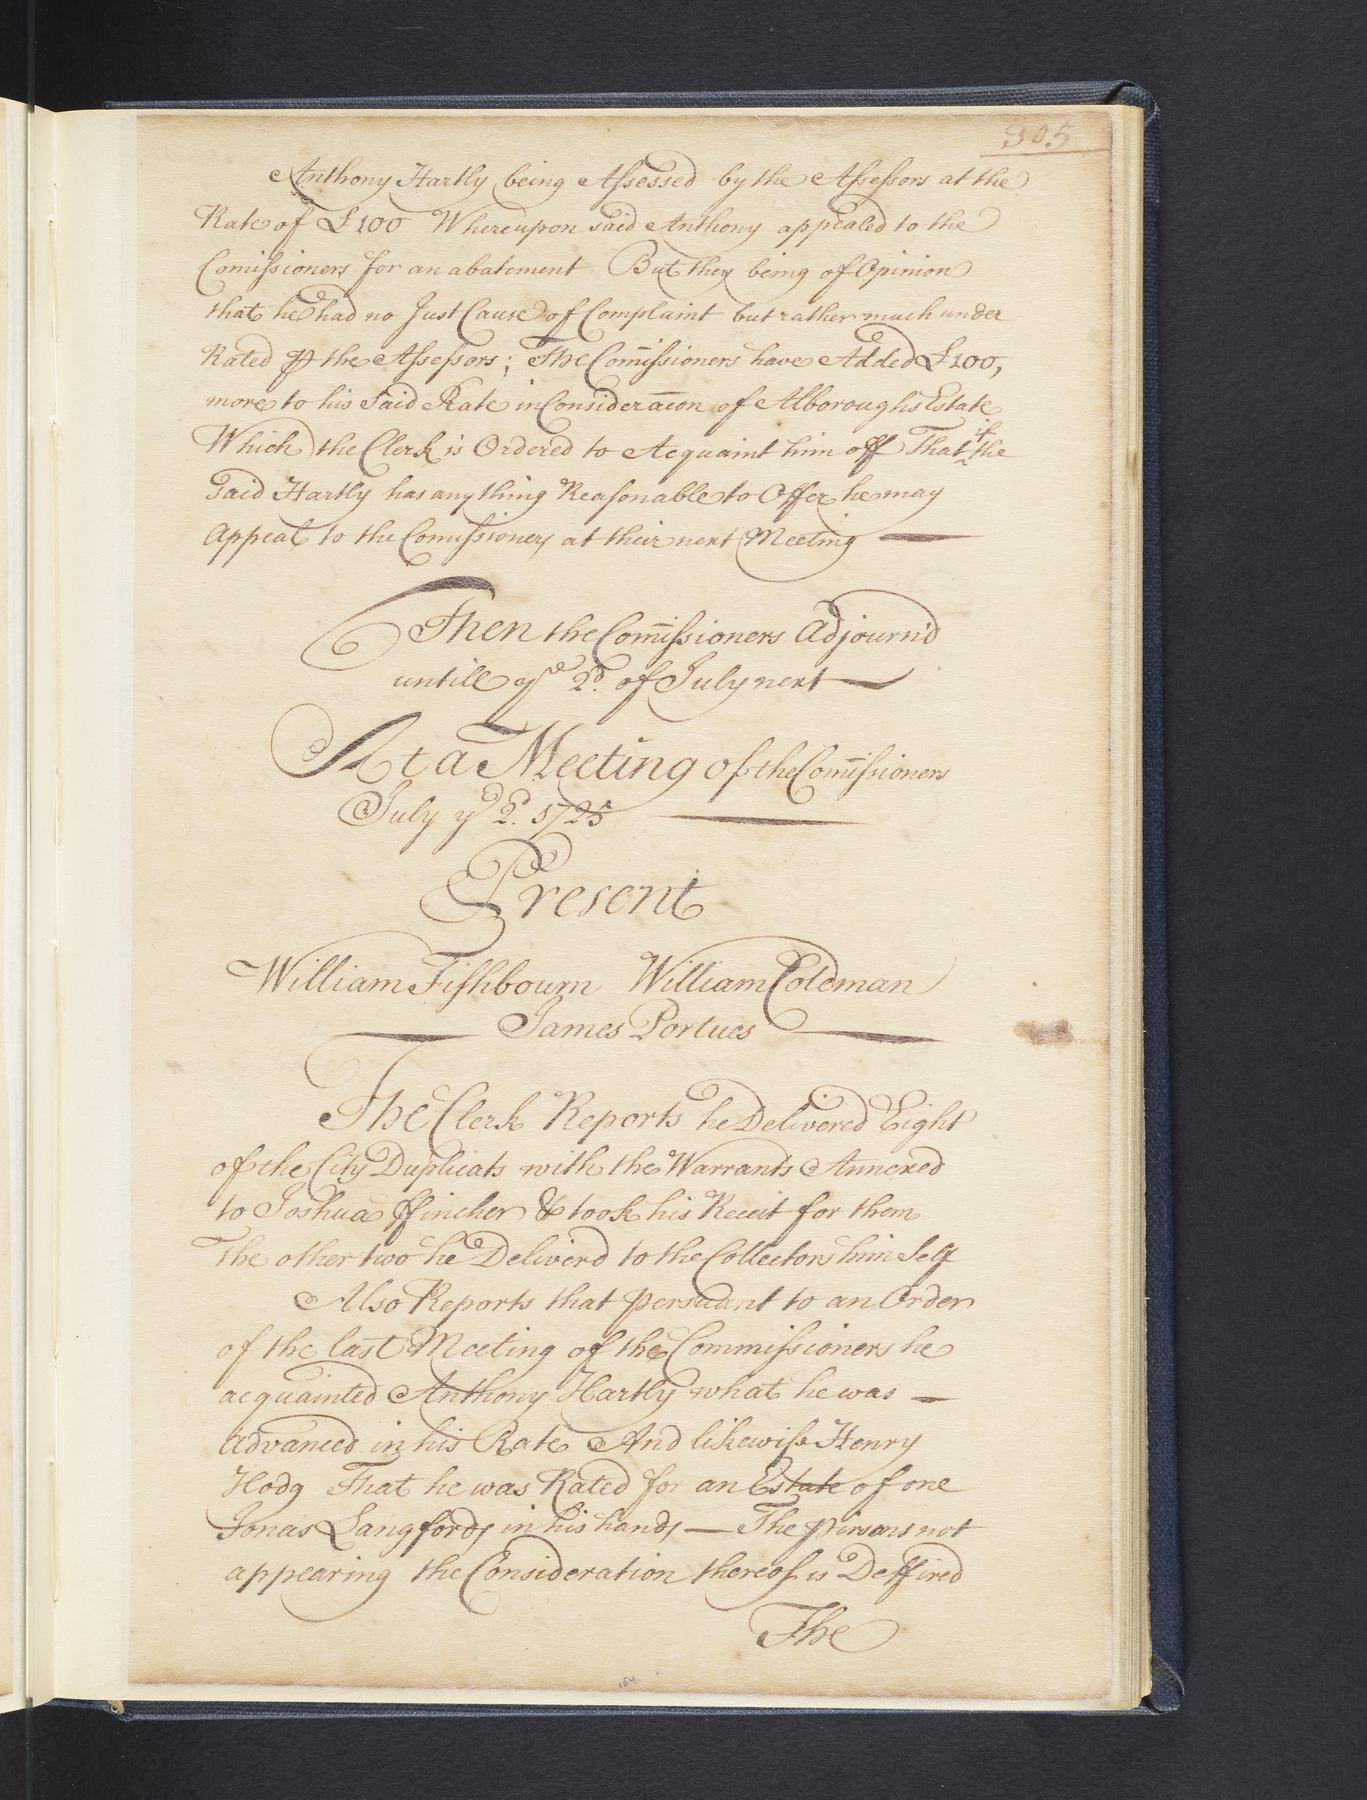 305
Anthony Hartly being Assessed by the Assessors at the
Rate of £100 Whereupon said Anthony appealed to the
Comissioners for an abatement But they being of Opinion
that he had no Just Cause of Complaint but rather much under
Rated ꝑ the Assessors; The Com̄issioners have Added £100,
more to his Said Rate in Consideracōn of Alboroughs Estate
Which the Clerk is Ordered to Acquaint him off That if the
Said Hartly has any thing Reasonable to Offer he may
appeal to the Comissioners at their next Meeting
Then the Com̄issioners Adjourn'd
untill yᵉ 2ᵈ. of July next
At a Meeting of the Com̄issioners
July yᵉ 2ᵈ. 1725
Present
William Fishbourn William Coleman
James Portues
The Clerk Reports he Delivered Eight
of the City Duplicats with the Warrants Annexed
to Joshua ffincher & took his Receit for them
The other two he Deliverd to the Collectors him Self
Also Reports that persuant to an Order
of the last Meeting of the Commissioners he
acquainted Anthony Hartly what he was
advanced in his Rate And likewise Henry
Hodg That he was Rated for an Estate of one
Jonas Langfords in his hands — The persons not
appearing the Consideration thereof is Deffired
The
154